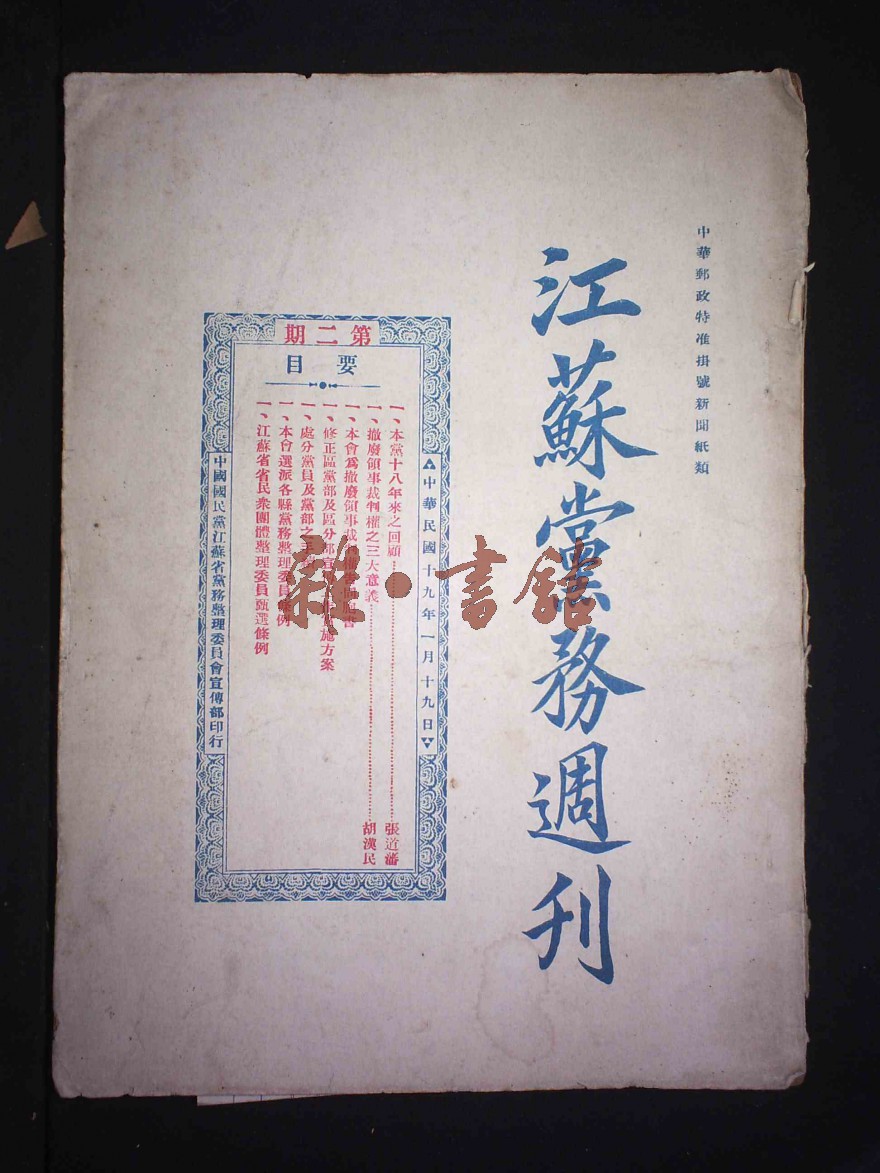 中華郵政特准掛號新聞紙類
江蘇黨務週刊
第二期
要目
中華民國十九年一月十九日
一、本黨十八年來之回顧……張道藩
一、撤廢領事裁判權之三大意義……胡漢民
一、本會為撤廢領事裁
修正區黨部及區分部宣 施方案
一、處分黨員及黨部之手
一、本會選派各縣黨務整理委員條例
一、江蘇省省民眾團體整理委員甄選條例
中國國民黨江蘇省黨務整理委員會宣傳部印行
雜·書館